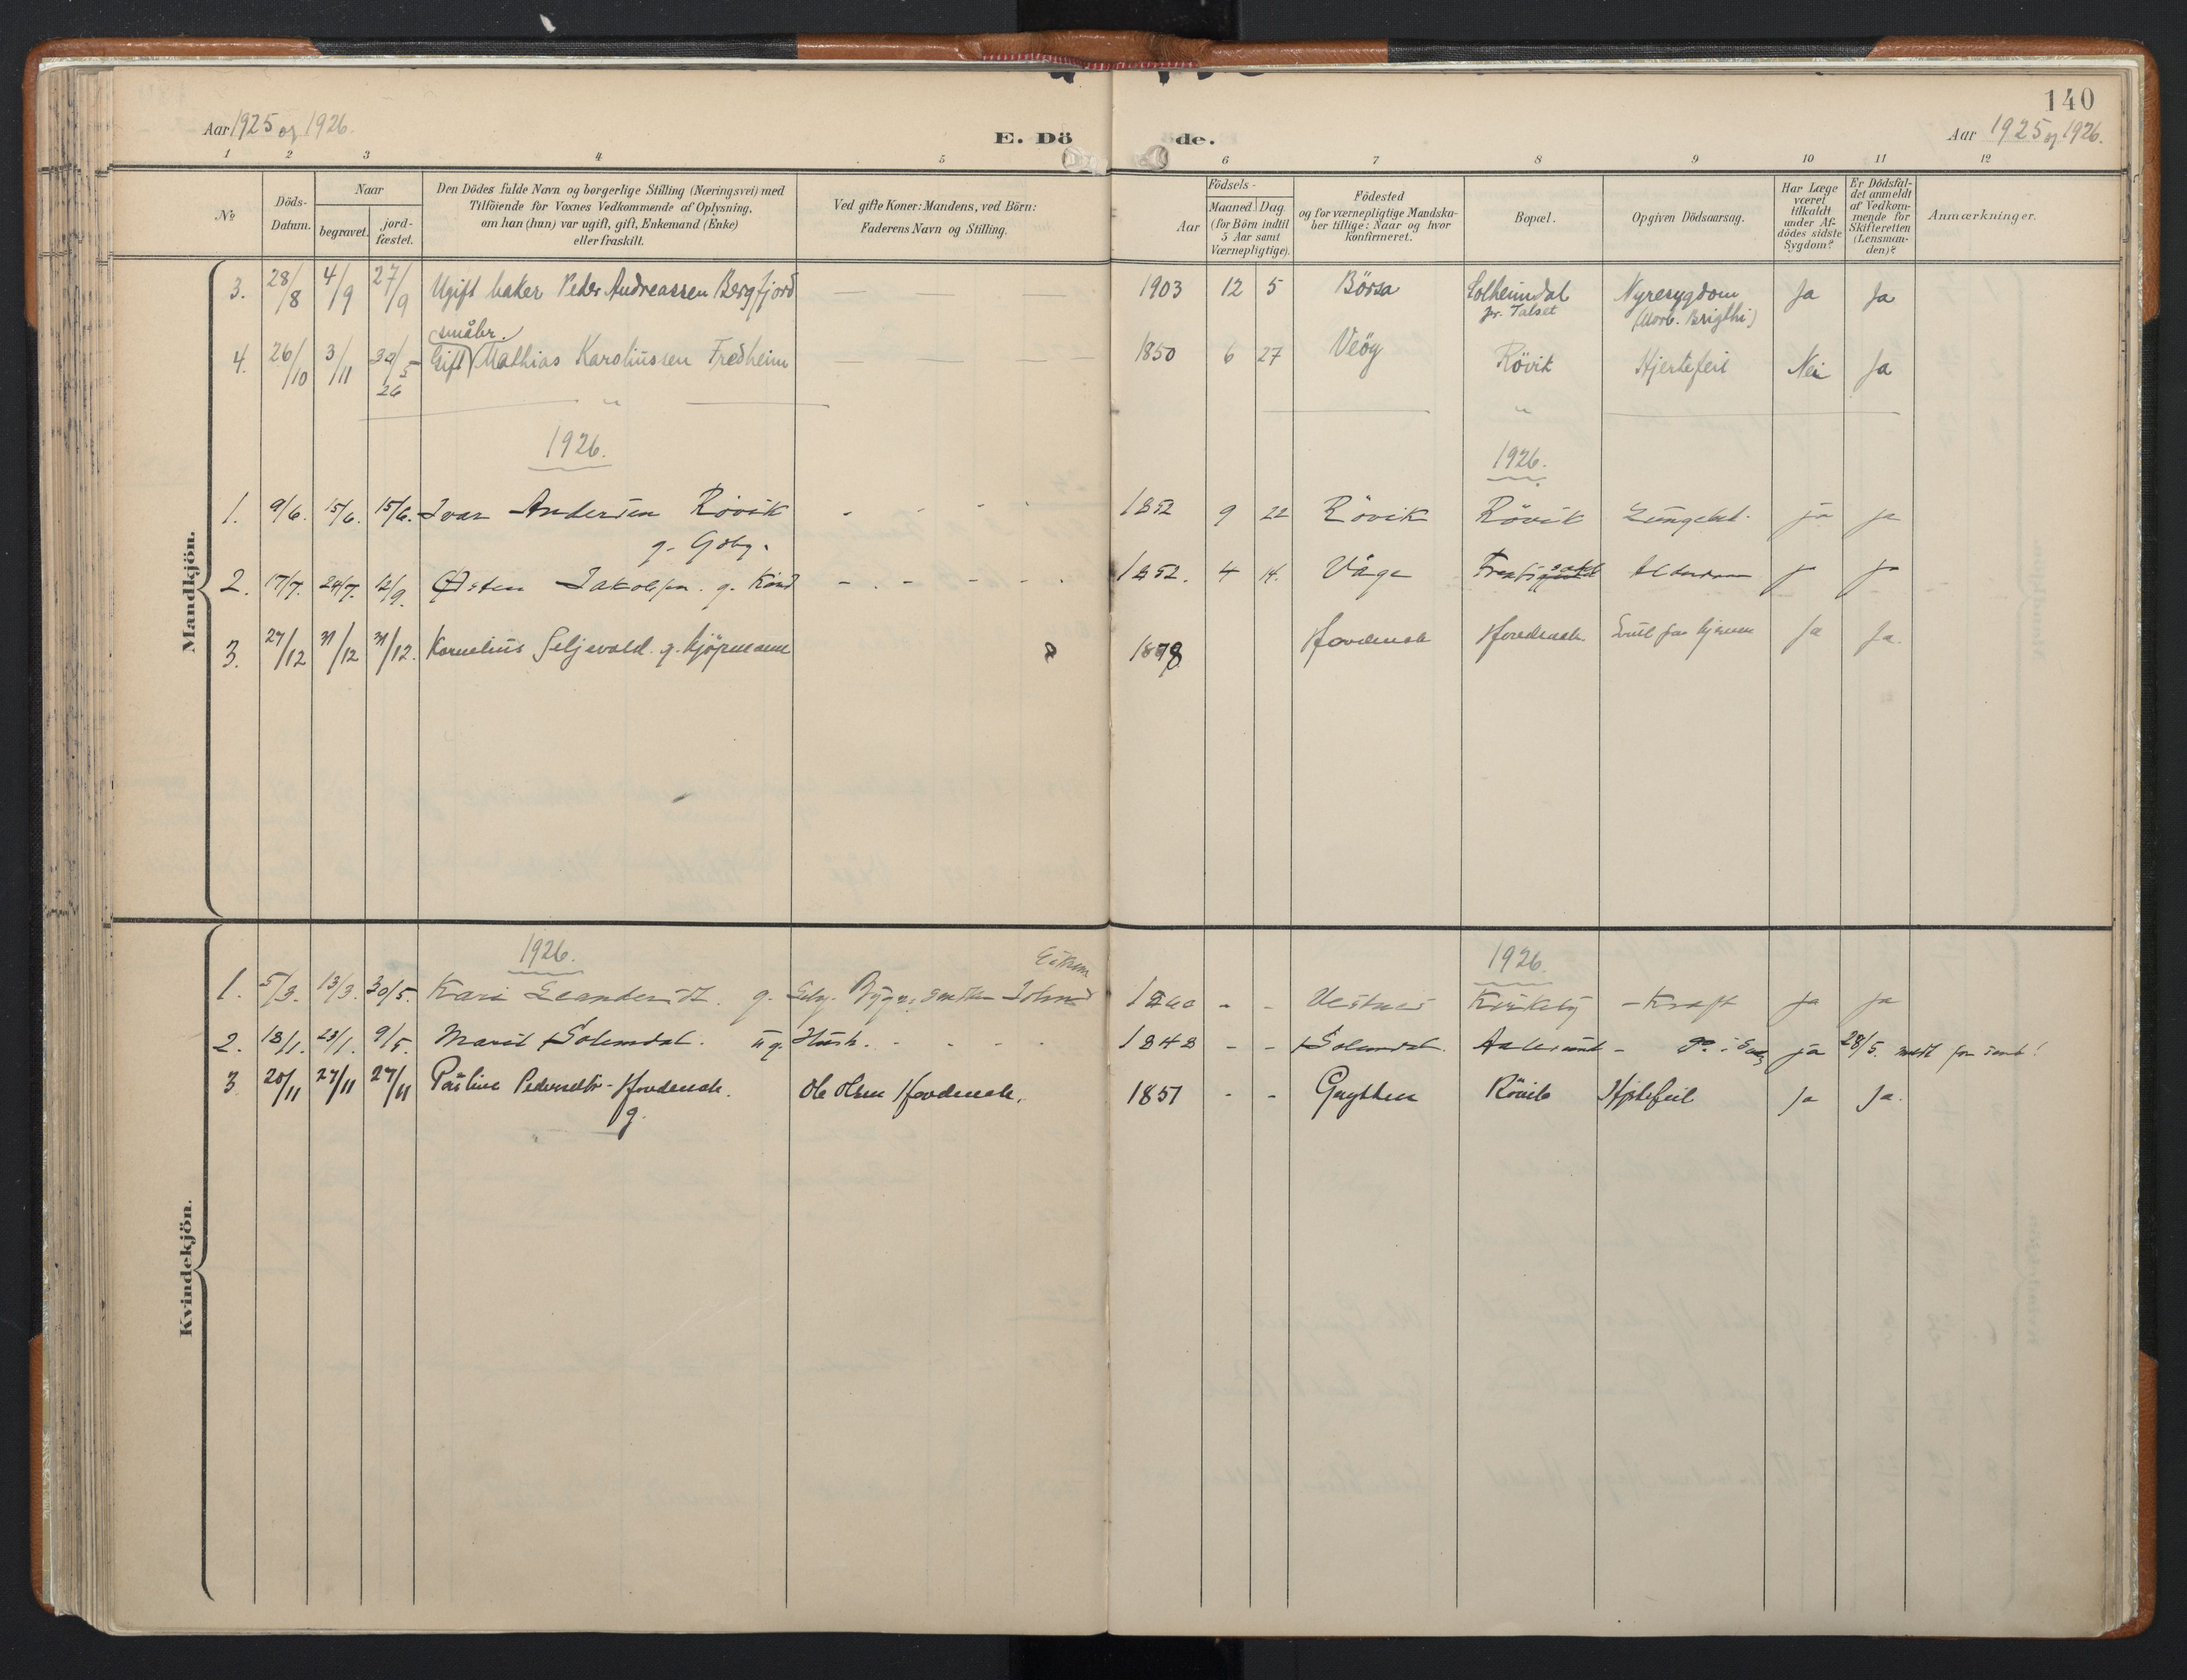 140
Aar 1925 og 1926.
E. Döde.
Aar 1925 og 1926.
1 2 3 4 5 6 7 8 9 10 11 12
№
Döds-Datum.
Naar
begravet.
jord-fæstet.
Den Dödes fulde Navn og borgerlige Stilling (Næringsvei) med
Tilföiende for Voxnes Vedkommende af Oplysning,
om han (hun) var ugift, gift, Enkemand (Enke)
eller fraskilt.
Ved gifte Koner: Mandens, ved Börn:
Faderens Navn og Stilling.
Födsels-
Aar
Maaned Dag
(for Börn indtil
5 Aar samt
Værnepligtige).
Födested
og for værnepligtige Mandska-
ber tillige: Naar og hvor
konfirmeret.
Bopæl.
Opgiven Dödsaarsag.
Har Læge
været
tilkaldt
under Af-
dödes sidste
Sygdom?
Er Dödsfal-
det anmeldt
af Vedkom-
mende for
Skifteretten
(Lensman-
den)?
Anmærkninger.
Mandkjön.
3. 28/8 4/9 27/9 Ugift baker Peder Andreassen Bergfjord — — — 1903 12 5 Börsa Solheimdal pr. Talset Nyresygdom (Morb. Brigthi) Ja Ja
småbr.
4. 26/10 3/11 30/5 26 Gift Mathias Karoliussen Fredheim — — — 1850 6 27 Veöy Rövik Hjertefeil Nei Ja
1926. 1926.
1. 9/6. 15/6. 15/6. Ivar Andersen Rövik - - - 1852 9 22 Rövik Rövik Lungebet. ja ja
g. Gbg.
2. 17/7. 24/7. 12/9. Østen Jakobsen. g. Kaard - - - - 1852. 4 14. Våge Alderdom ja ja
3. 27/12 31/12 31/12. Kornelius Seljevold. g. kjöpmann 1878 Hovdenak Hovdenak Ja Ja.
Kvindekjön.
1926. 1926.
Eikrem
1. 5/3. 13/3. 30/5. Kari Leandersdt. g. - - Vestnes - Kræft ja ja
2. 18/1. 23/1. 9/5. Marit Solemdal. ug. Hush. - - - - 1848 - - Solemdal. Aalesund - ja 28/5.
3 20/11 27/11 27/11 Pauline Pedersdtr. Hovdenak. Ole Olsen Hovdenak. 1851 - - Grytten Rövik Hjertefeil Ja Ja.
g.